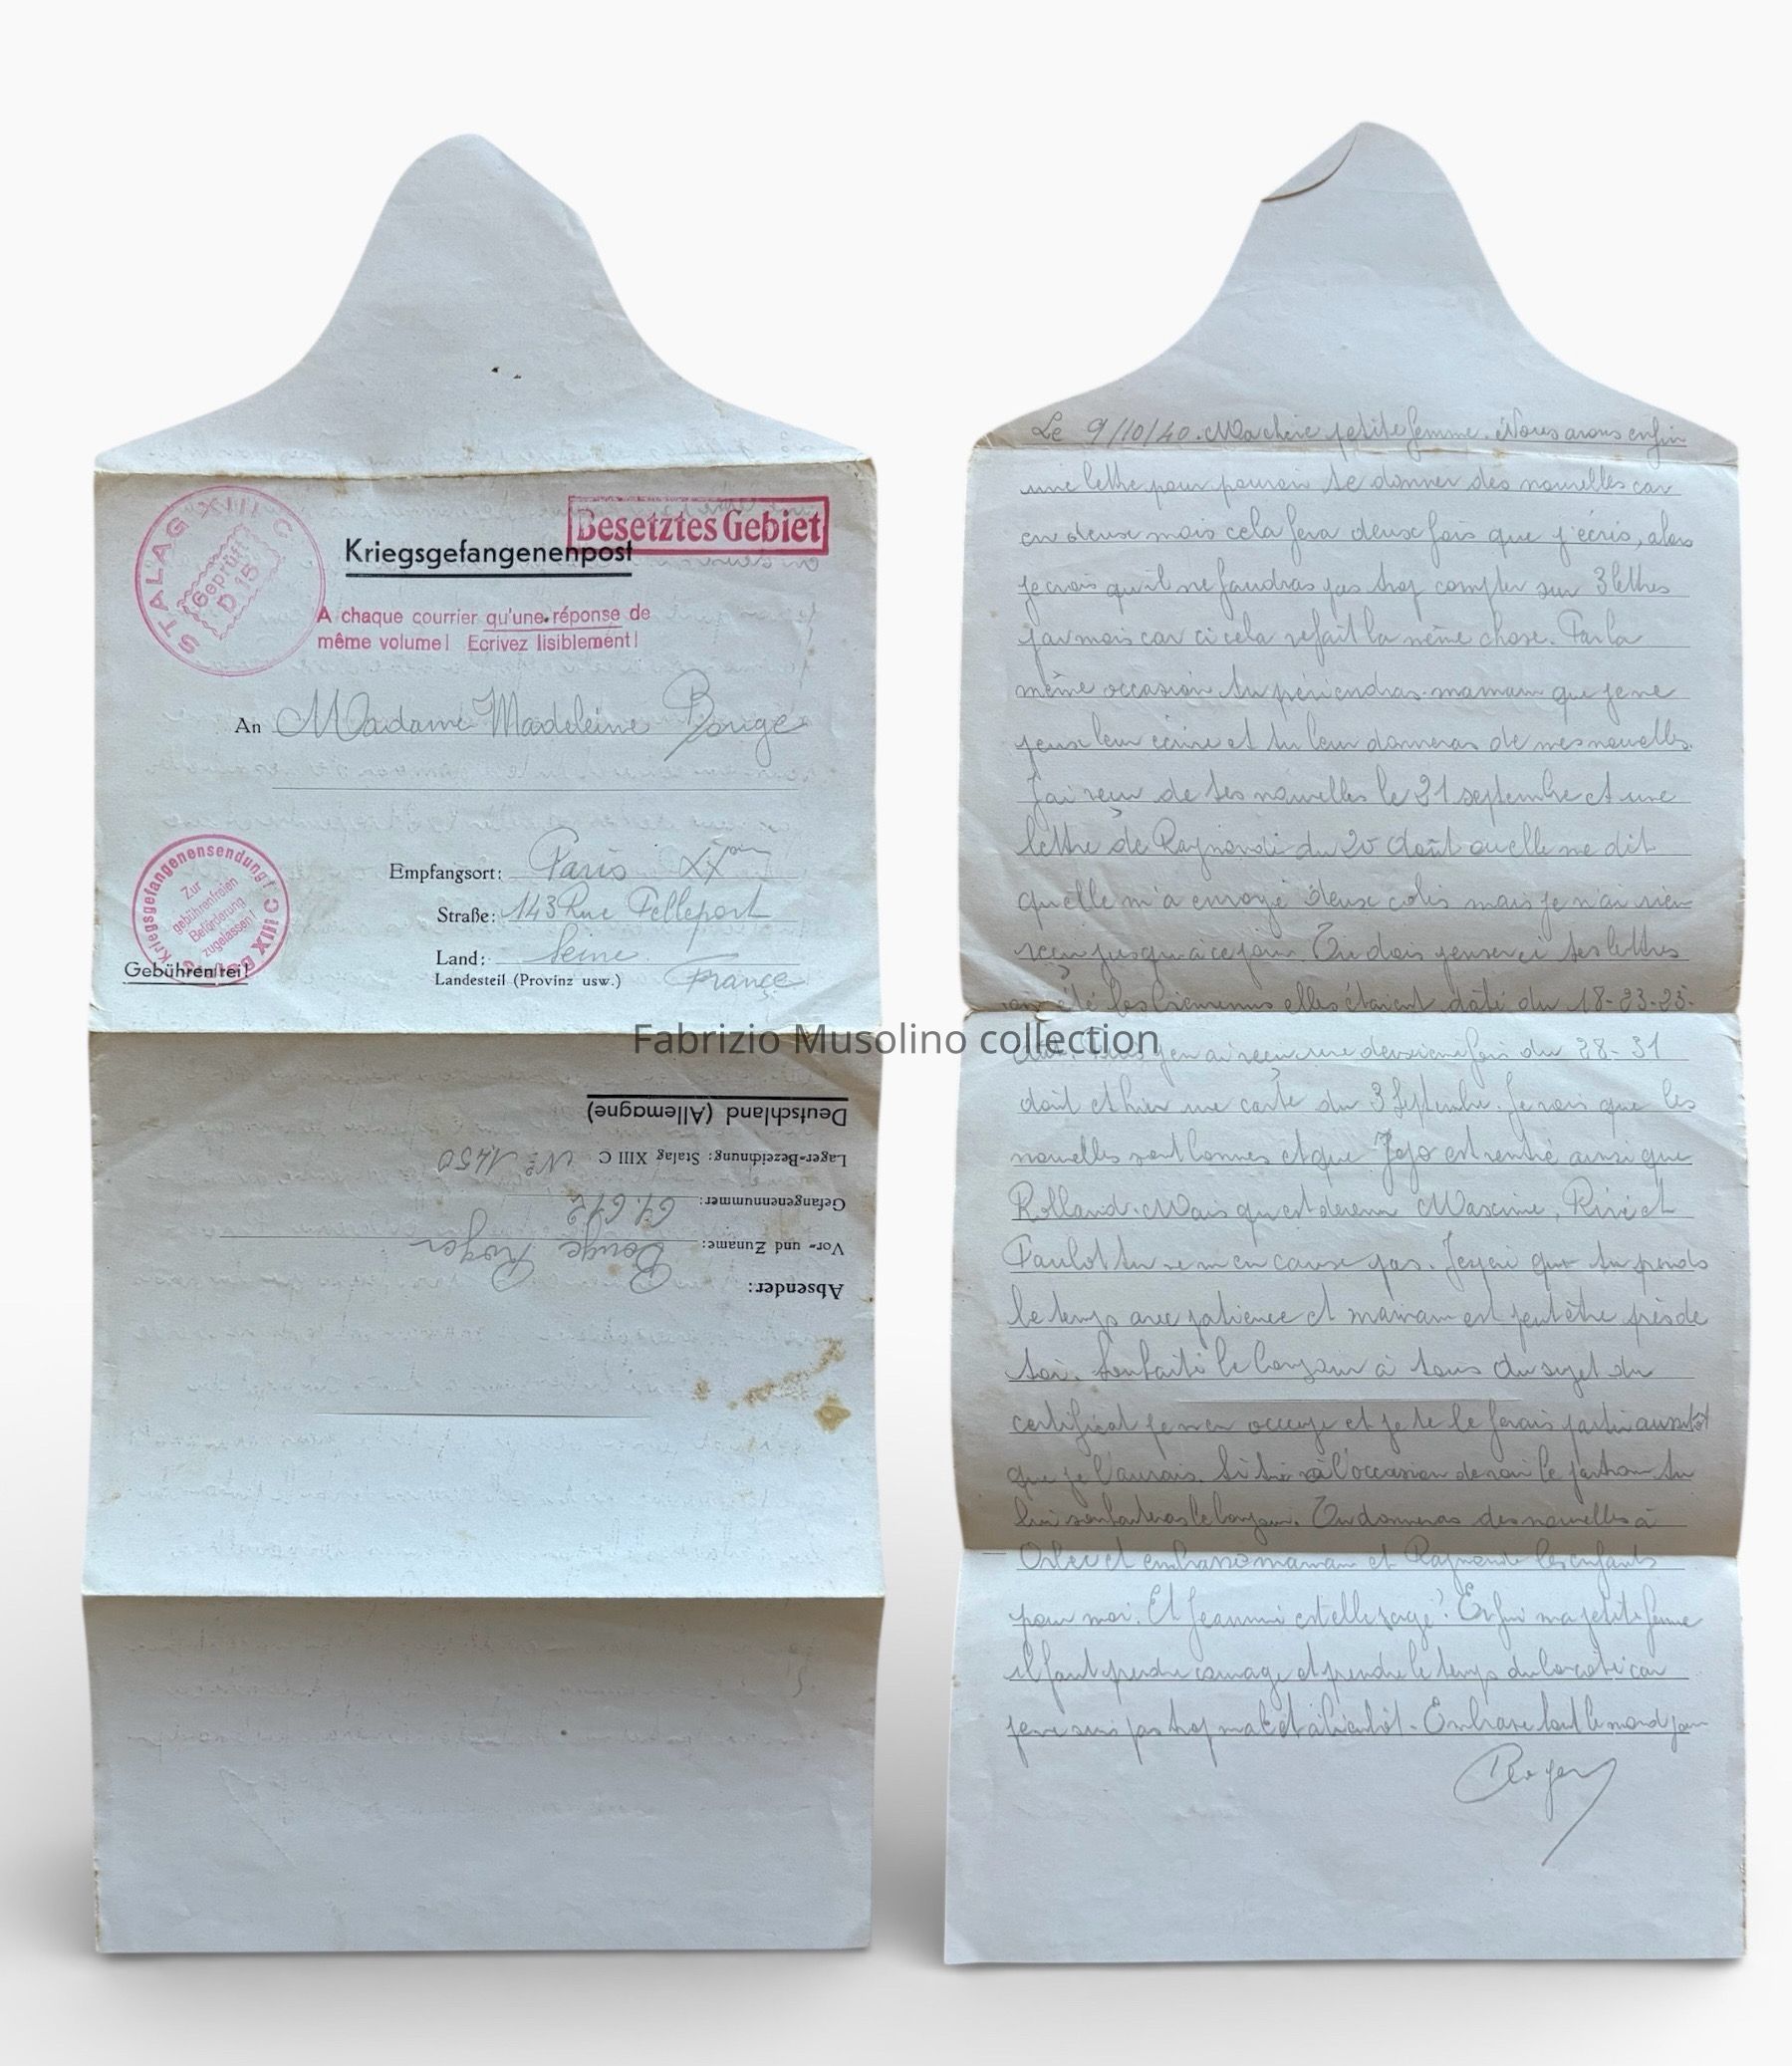 STALAG XIII C
Geprüft
D 15
Besetztes Gebiet
Kriegsgefangenenpost
A chaque courrier qu'une réponse de
même volume! Ecrivez lisiblement!
An Madame Madeleine Bouge
Kriegsgefangenensendung! Stalag XIII C
Zur
gebührenfreien
Beförderung
zugelassen!
Gebührenfrei!
Empfangsort: Paris XX
Straße: 143 Rue Pelleport
Land: Seine
Landesteil (Provinz usw.) France
Fabrizio Musolino collection
Absender:
Vor- und Zuname: Bouge Roger
Gefangenennummer: 61.612
Lager-Bezeichnung: Stalag XIII C Nº 1450
Deutschland (Allemagne)
Le 9/10/40. Ma chère petite femme. Nous avons enfin
une lettre pour pouvoir te donner des nouvelles car
en deux mois cela fera deux fois que j'écris, alors
je crois qu'il ne faudras pas trop compter sur 3 lettres
par mois car ici cela refait la même chose. Par la
même occasion tu maman que je ne
peux leur écrire et tu leur donneras de mes nouvelles.
J'ai reçu de tes nouvelles le 21 septembre et une
lettre de Raymonde du 20 Août ou elle me dit
quelle m'a envoyé deux colis mais je n'ai rien
reçu jusqu'à ce jour. Tu dois penser si tes lettres
ont été les bienvenus elles étaient daté du 18-23-25-
j'en ai reçu une deuxième fois du 28-31
août et hier une carte du 3 Septembre. Je vois que les
nouvelles sont bonnes et que Jojo est rentré ainsi que
Rolland. Mais qu'est devenu Maxime, Riri et
Paulot tu ne m'en cause pas. J'espère que tu prends
le temps avec patience et maman est peut être près de
toi. Souhaite le bonjour à tous. Au sujet du
certificat je m'en occupe et je te le ferais partir aussitôt
que je l'aurais. Si tu à l'occasion de voir le patron tu
lui souhaiteras le bonjour. Tu donneras des nouvelles à
Orbec et embrasse maman et Raymonde les enfants
pour moi. Et Jeannine est elle sage? Enfin ma petite femme
il faut prendre courage et prendre le temps du bon côté car
je ne suis pas trop mal et à bientôt. Embrasse tout le monde pour
Roger